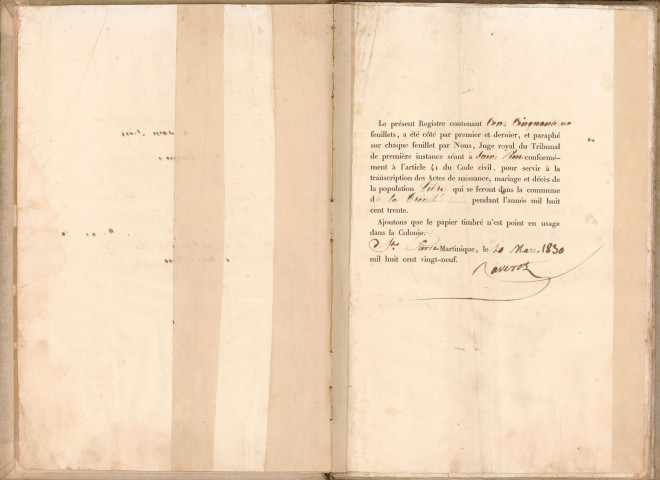 Le présent Registre contenant Cent Cinquante un
feuillets, a été côté par premier et dernier, et paraphé
sur chaque feuillet par Nous, Juge royal du Tribunal
de première instance séant à Saint Pierre conformé-
ment à l'article 41 du Code civil, pour servir à la
transcription des Actes de naissance, mariage et décès de
la population libre qui se feront dans la commune
de la Trinité pendant l'année mil huit
cent trente.
Ajoutons que le papier timbré n'est point en usage
dans la Colonie.
St. Pierre Martinique, le 20 Mars 1830
mil huit cent vingt-neuf.